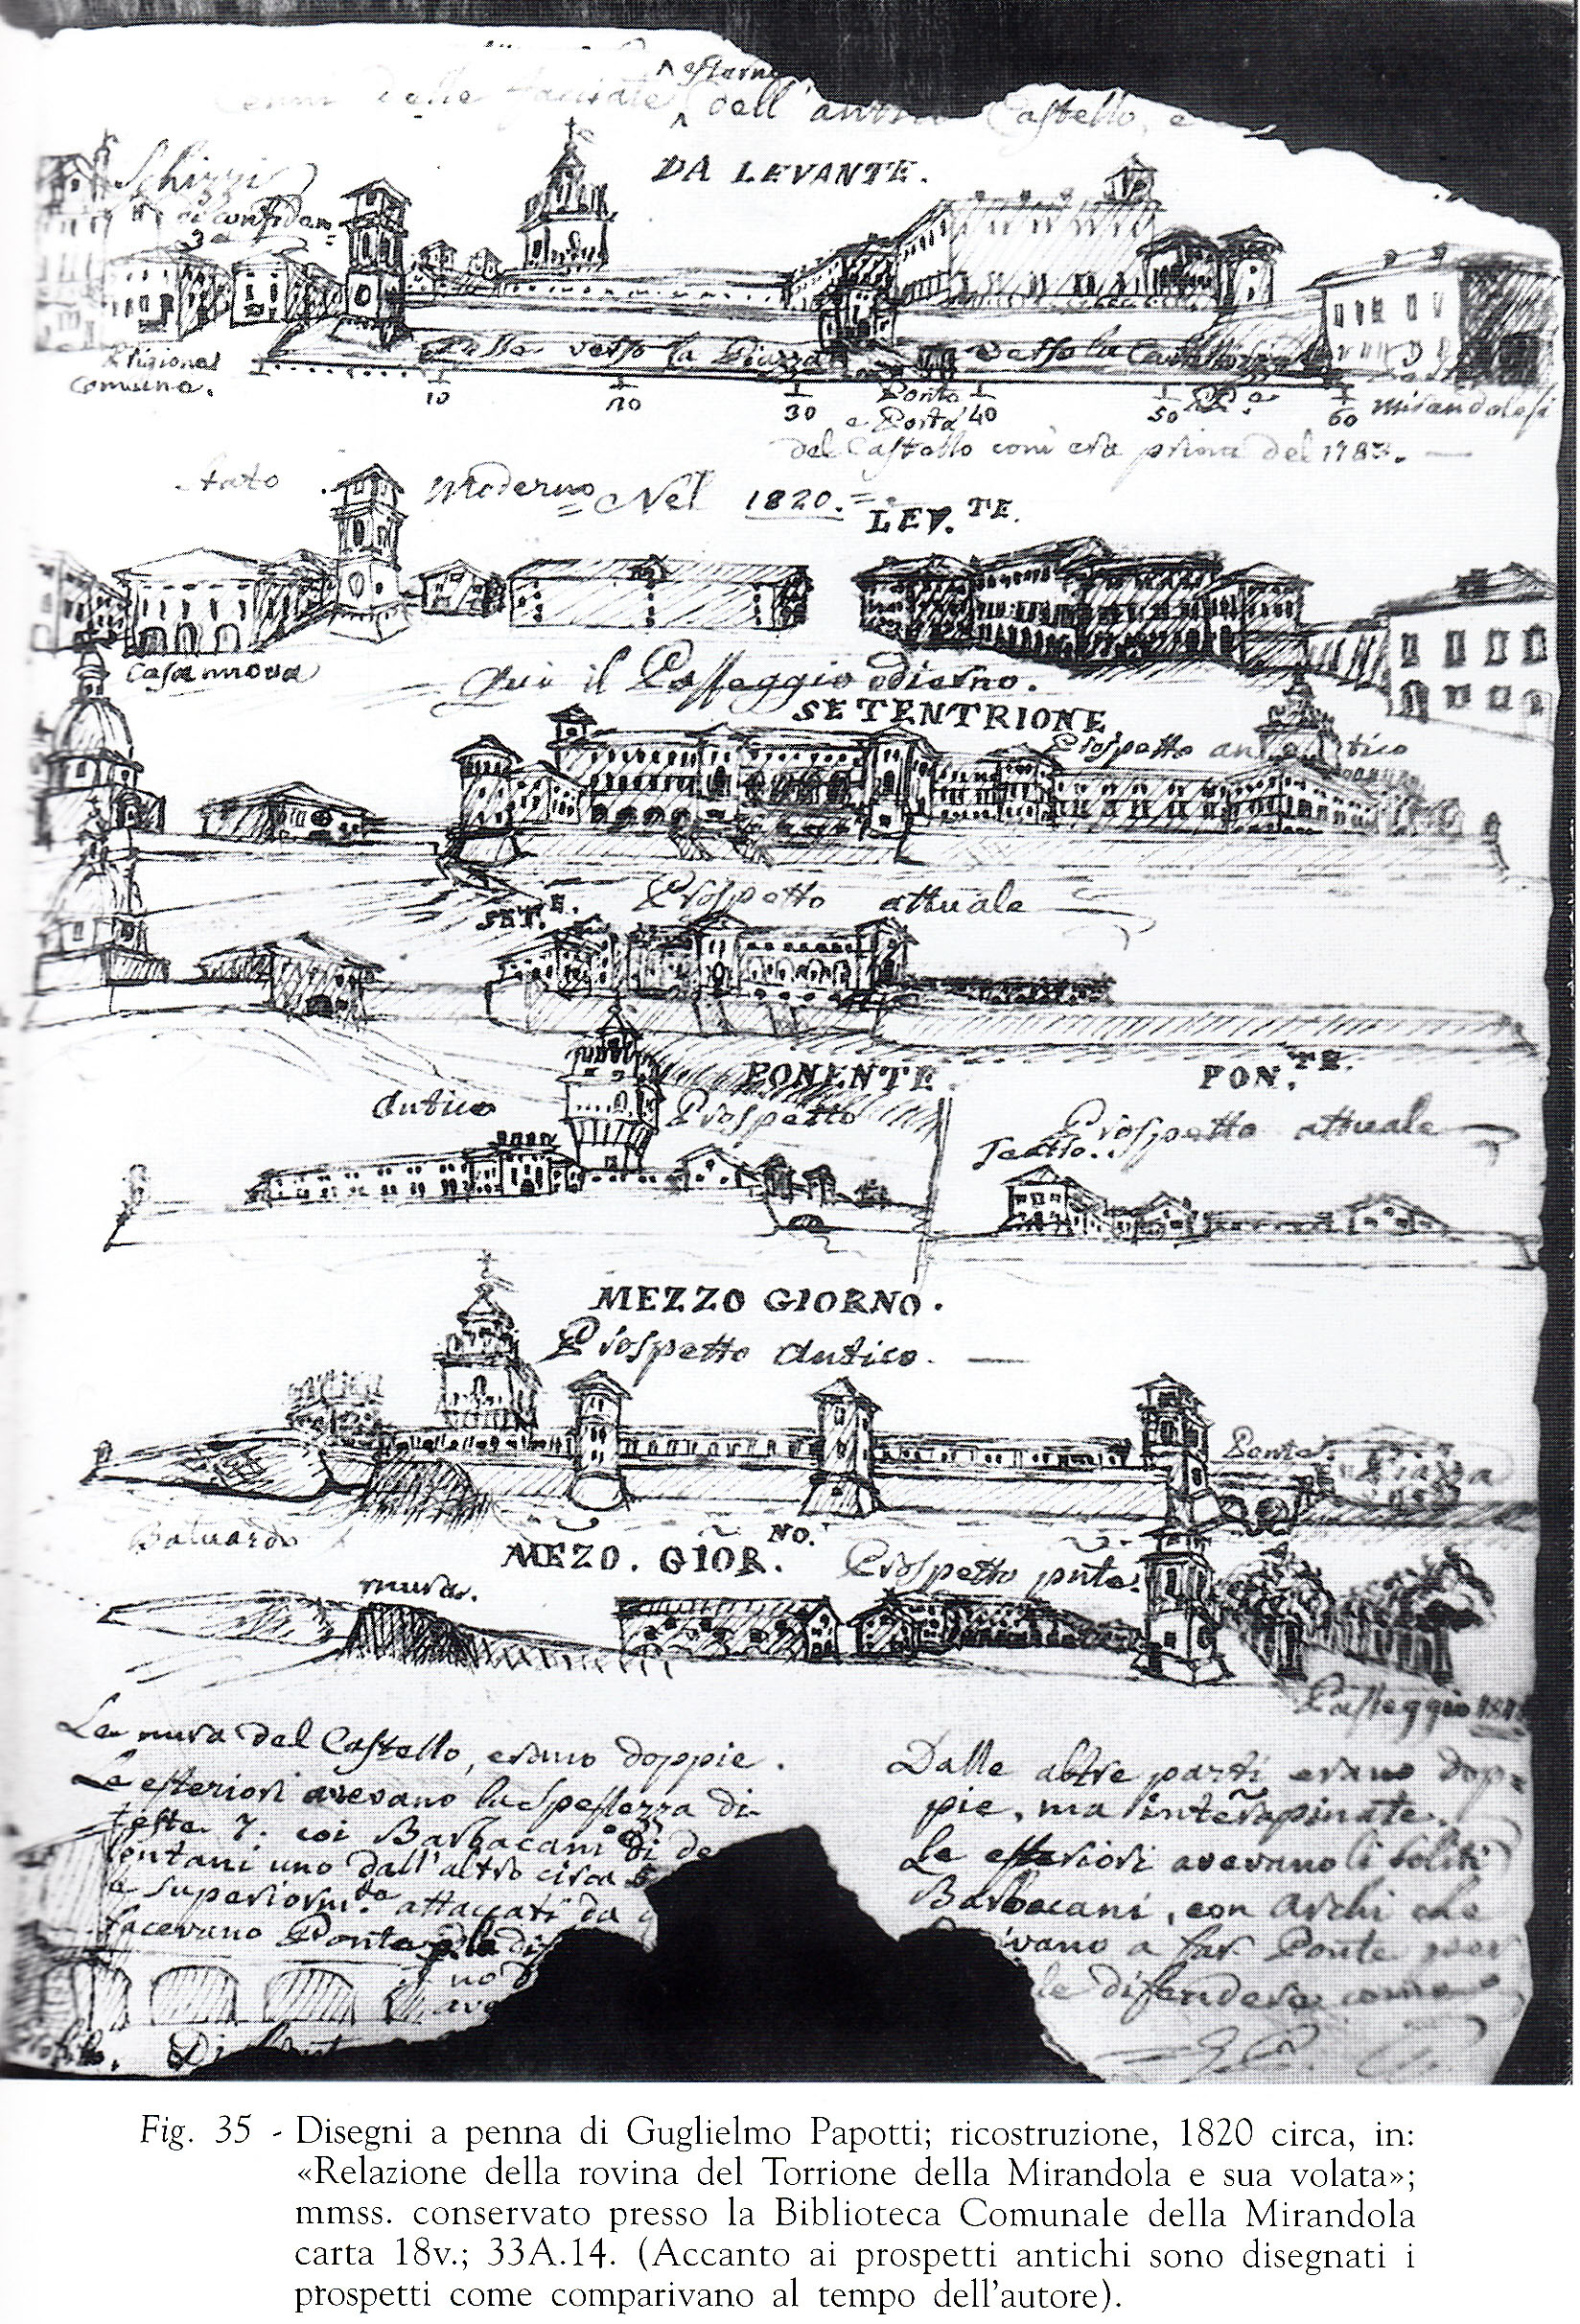 esterne
Cenni delle facciate dell' antico Castello, e
Schizzi
di confidenza
DA LEVANTE.
Prigione
Comune.
Fosse verso la Piazza
verso la Cavallerizza
10 20 30 40 50 60
Ponte
e Porta
Mirandolesi
del Castello com' era prima del 1783. —
Stato Moderno = Nel 1820. = LEV.TE.
Casa nuova
Qui il Passeggio odierno.
SETENTRIONE
Prospetto antico
SET.E. Prospetto attuale
PONENTE
Antico Prospetto
PON.TE.
Prospetto attuale
Teatro.
MEZZO GIORNO.
Prospetto Antico. —
Ponte Piazza
Baluardo
MEZO. GIOR.NO. Prospetto pnte.
mura.
Passeggio
Le mura del Castello, erano doppie.
Le esteriori avevano la spessezza di
teste 7. coi Barbacani di de
lontani uno dall'altro circa
e superiorm.te attaccati da
facevano Ponte
no
Dalle altre parti erano dop=
pie, ma interrapinate.
Le esteriori avevano li soliti
Barbacani, con Archi che
ivano a far Ponte per
le difendere come
Fig. 35 - Disegni a penna di Guglielmo Papotti; ricostruzione, 1820 circa, in:
«Relazione della rovina del Torrione della Mirandola e sua volata»;
mmss. conservato presso la Biblioteca Comunale della Mirandola
carta 18v.; 33A.14. (Accanto ai prospetti antichi sono disegnati i
prospetti come comparivano al tempo dell'autore).